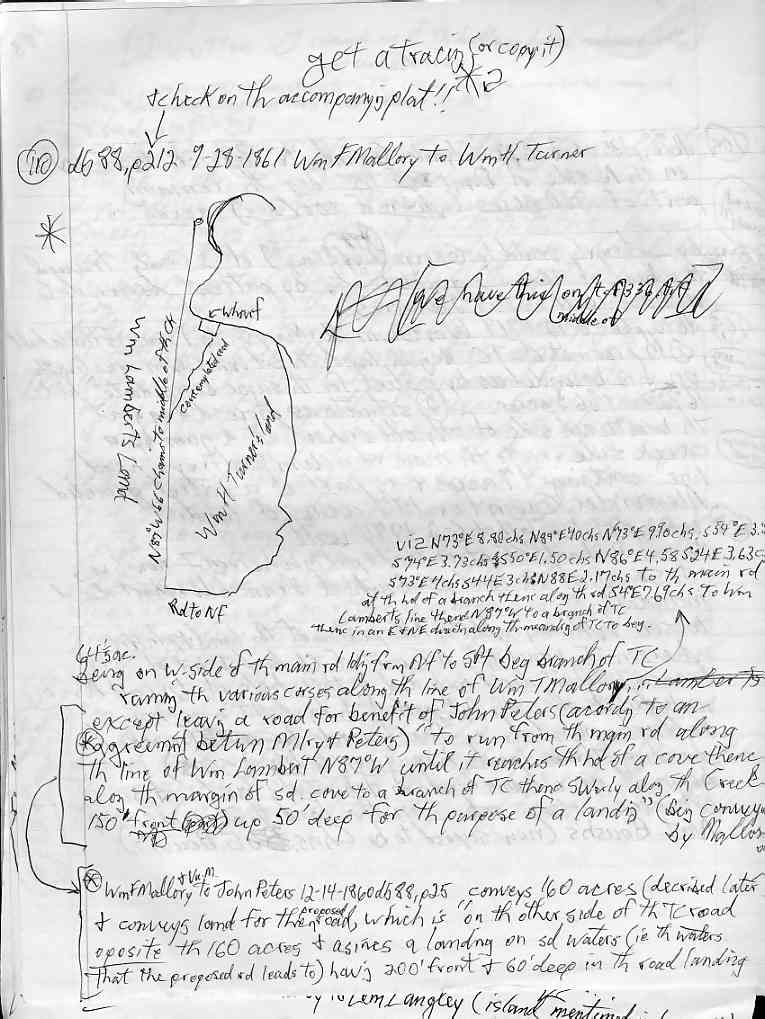 get a tracing (or copy it)
*2
+ check on th accompanying plat!!
(110) db 88, p212 9-28-1861 Wm F Mallory to Wm H. Turner
*
wharf
We have this on
middle of
contemplated road
Wm Lamberts Land
N87°W 66 chains to middle of th ck
Wm H Turners land
Rd to Nf
viz N73°E 8.80chs N89°E 40chs N73°E 9.90chs, S34°E 3.
S74°E 3.73chs S50°E 1.50 chs N86°E 4.58 S24E 3.63c
S73°E 4chs S44E 3chs N88E 2.17chs To th main rd
at th hd of a branch thenc along th rd S4°E 7.69chs To Wm
Lamberts line thenc N87°W to a branch of TC
thenc in an E & NE direch along th meandig of TC To beg.
64⅓ac.
being on W. side of th main rd ldg frm Nf to SPt beg branch of TC
runing th various corses along th line of Wm T Mallory, Lamberts
except leavig a road for benefit of John Peters (acordg to an
* agreemnt betwn Mlry & Peters) "to run from th main rd along
th line of Wm Lambert N87°W until it reaches th hd of a cove thenc
along th margin of sd. cove to a branch of TC thenc SWrly along th Creek
150' front up 50' deep for th purpose of a landig" (big conveya
by Mallory
* Wm F Mallory + Va. M. to John Peters 12-14-1860 db88, p25 conveys 160 acres (decribed later
+ conveys land for the proposed road, which is "on th other side of th TC road
oposite th 160 acres + asines a landng on sd waters (ie th waters
that the proposed rd leads to) havig 200' front + 60' deep in th road landing
to Lem Langley (island mentioned